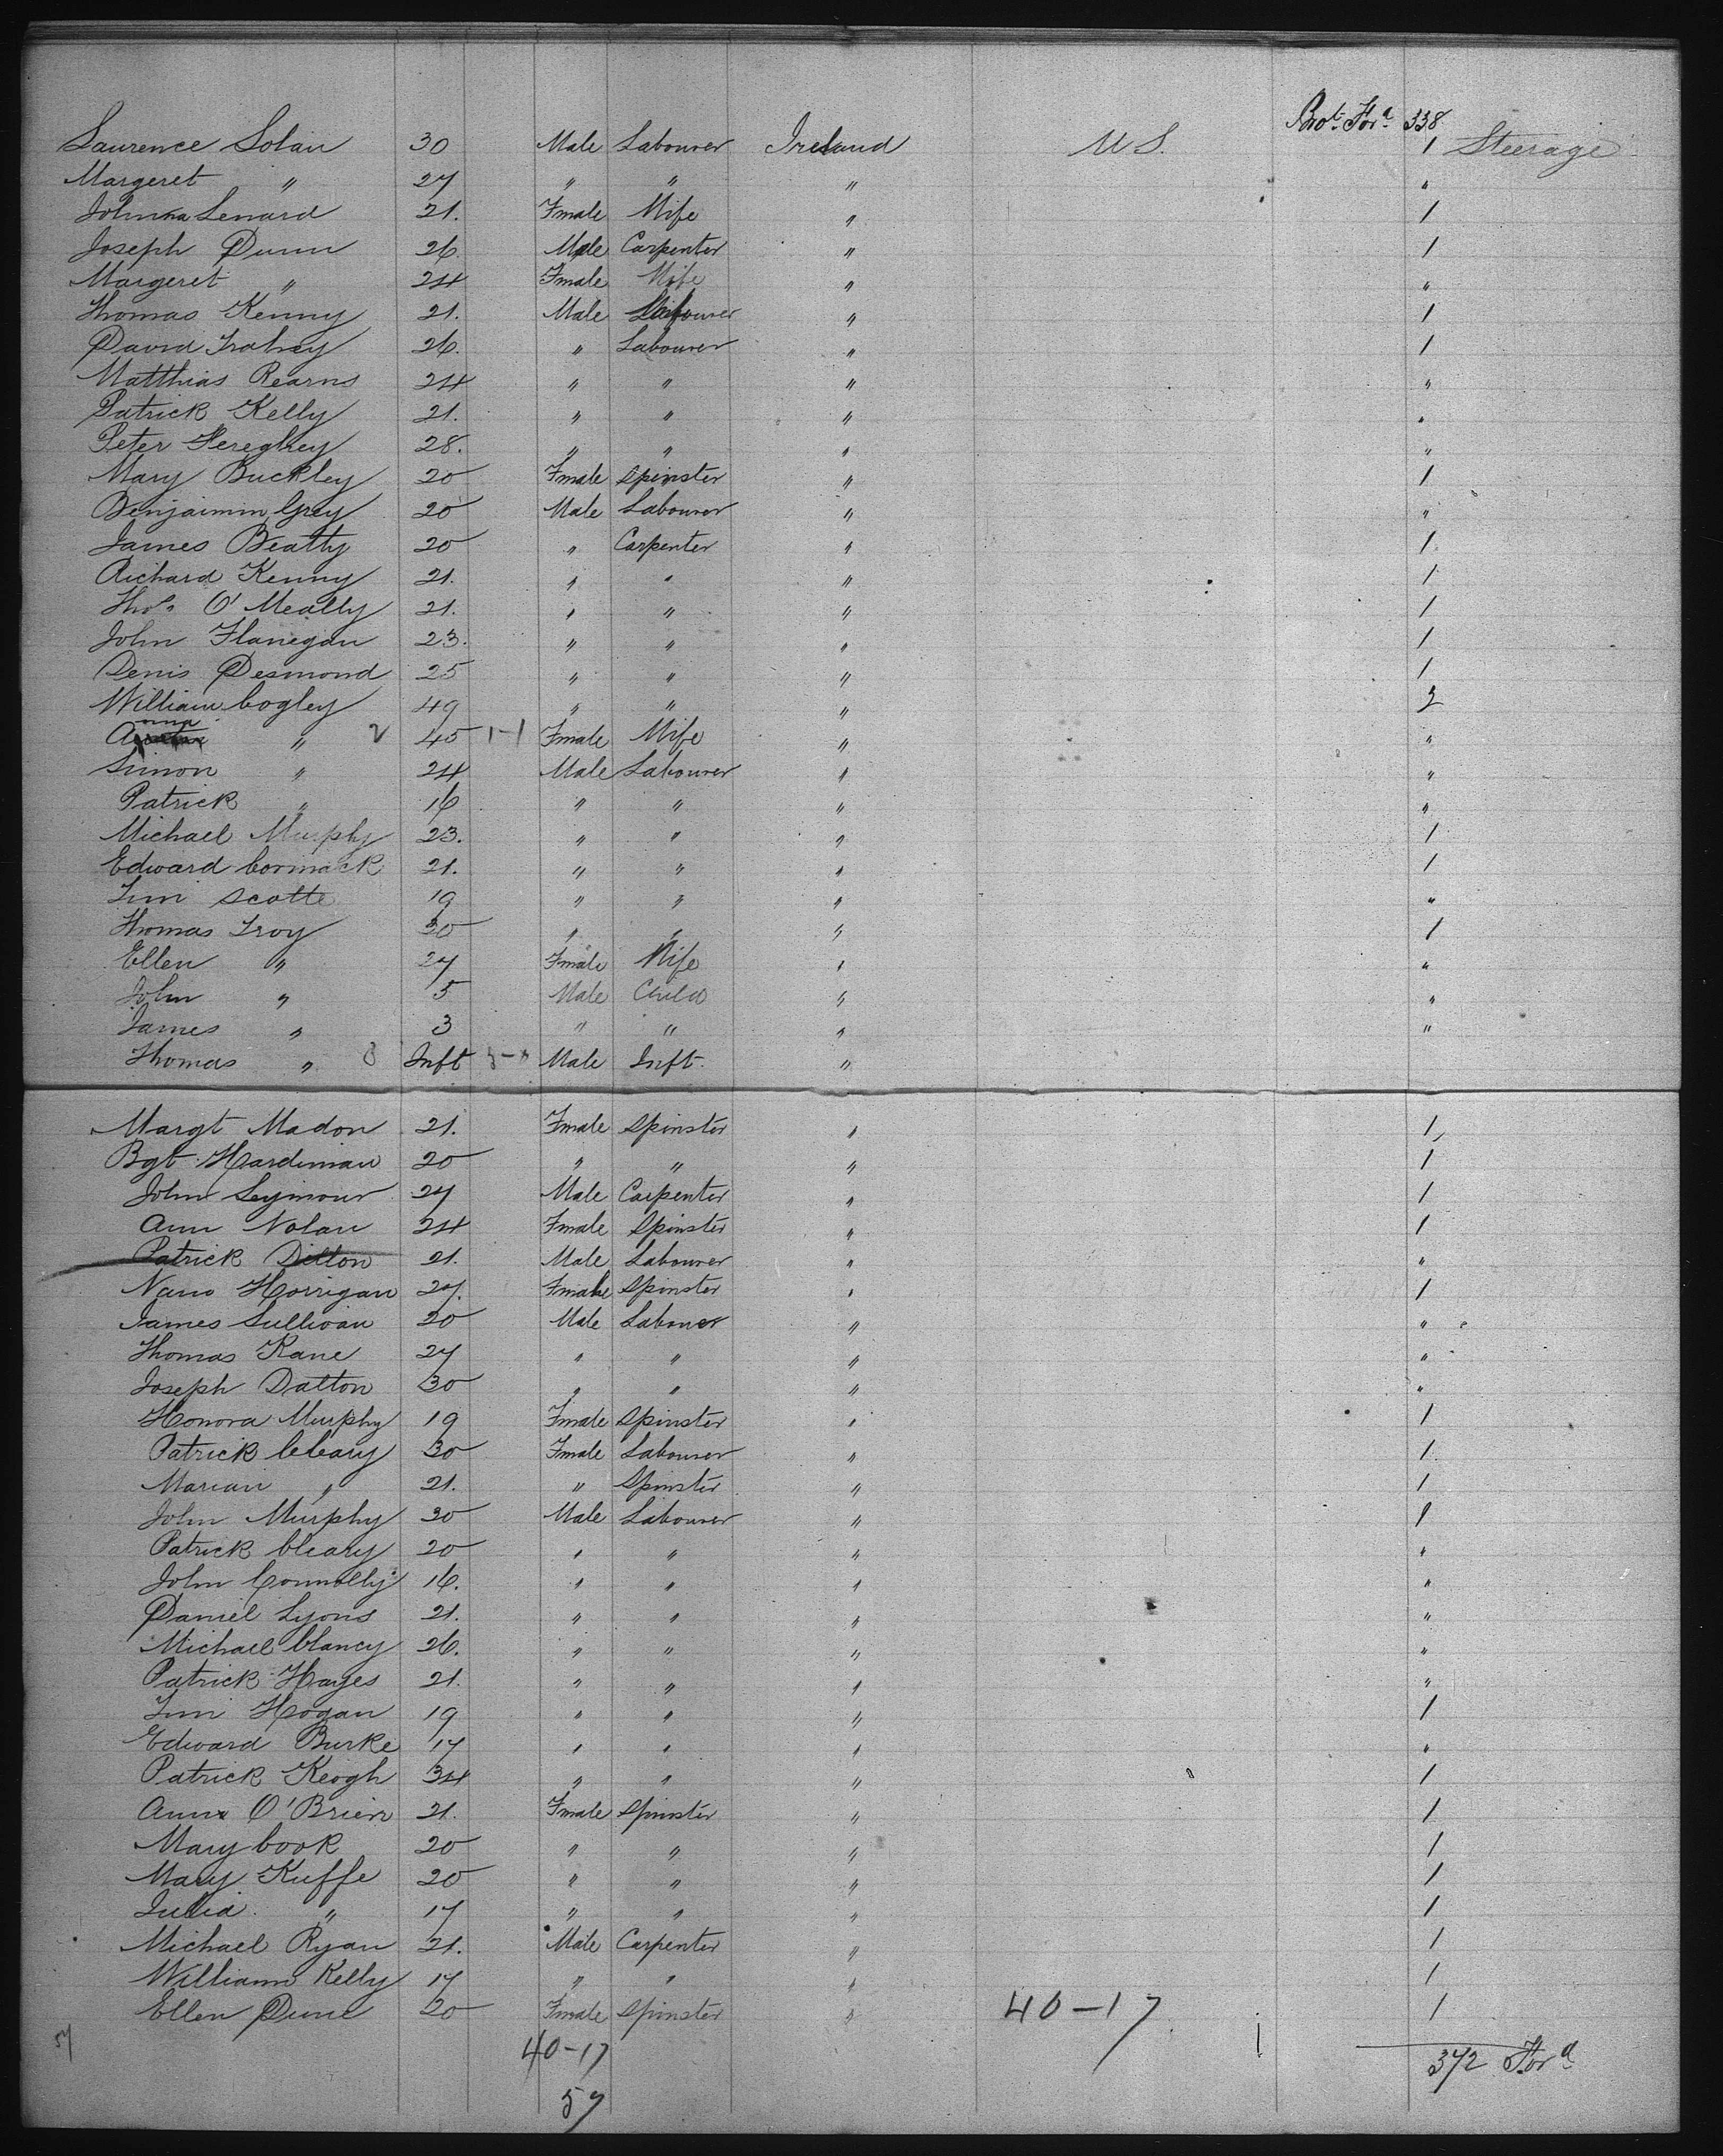 Brot. Ford. 338
Laurence Solan 30 Male Labourer Ireland U S. 1 Steerage
Margeret " 27 " " " "
Johnna Lenard 21. Fmale Wife " 1
Joseph Dunn 26 Male Carpenter " 1
Margeret " 24 Fmale Wife " "
Thomas Kenny 21. Male Labourer " 1
David Frahey 26. " Labourer " 1
Matthias Rearns 24 " " " "
Patrick Kelly 21. " " " "
Peter 28. " " " "
Mary Buckley 20 Fmale Spinster " 1
Benjaimin Grey 20 Male Labourer " "
James Beatty 20 " Carpenter " 1
Richard Kenny 21. " " " 1
Thos. O'Meally 21. " " " 1
John Flanegan 23. " " " 1
Denis Desmond 25 " " " 1
William Cogley 49 " " " 2
Anna " 2 45 1-1 Fmale Wife " "
Simon " 24 Male Labourer " "
Patrick " 16 " " " "
Michael Murphy 23. " " " 1
Edward Cormack 21. " " " 1
Jim Scotte 19 " " " "
Thomas Troy 30 " " " 1
Ellen " 27 Fmale Wife " "
John " 5 Male Child " "
James " 3 " " " "
Thomas " 3 Inft Male Inft. "
Margt Madon 21. Fmale Spinster " 1
Bgt Hardiman 20 " " " 1
John Seymour 27 Male Carpenter " 1
Ann Nolan 24 Fmale Spinster " 1
Patrick Dillon 21. Male Labourer " "
Nano Horrigan 27. Fmale Spinster " 1
James Sullivan 20 Male Labourer " "
Thomas Kane 27 " " " "
Joseph Dalton 30 " " " "
Honora Murphy 19 Fmale Spinster " 1
Patrick Cleary 30 Fmale Labourer " 1
Marian " 21. " Spinster " 1
John Murphy 30 Male Labourer " 1
Patrick Cleary 20 " " " "
John Connolly 16. " " " "
Daniel Lyons 21. " " " "
Michael Clancy 26. " " " "
Patrick Hayes 21. " " " "
Jim Hogan 19 " " " 1
Edward Burke 17 " " " "
Patrick Keogh 34 " " " 1
Ann O'Brien 21. Fmale Spinster " 1
Mary Cook 20 " " " 1
Mary Kuffe 20 " " " 1
Julia " 17 " " " 1
Michael Ryan 21. Male Carpenter " 1
William Kelly 17 " " " 1
Ellen Dune 20 Fmale Spinster " 40-17 1
57 40-17 372 Ford
57